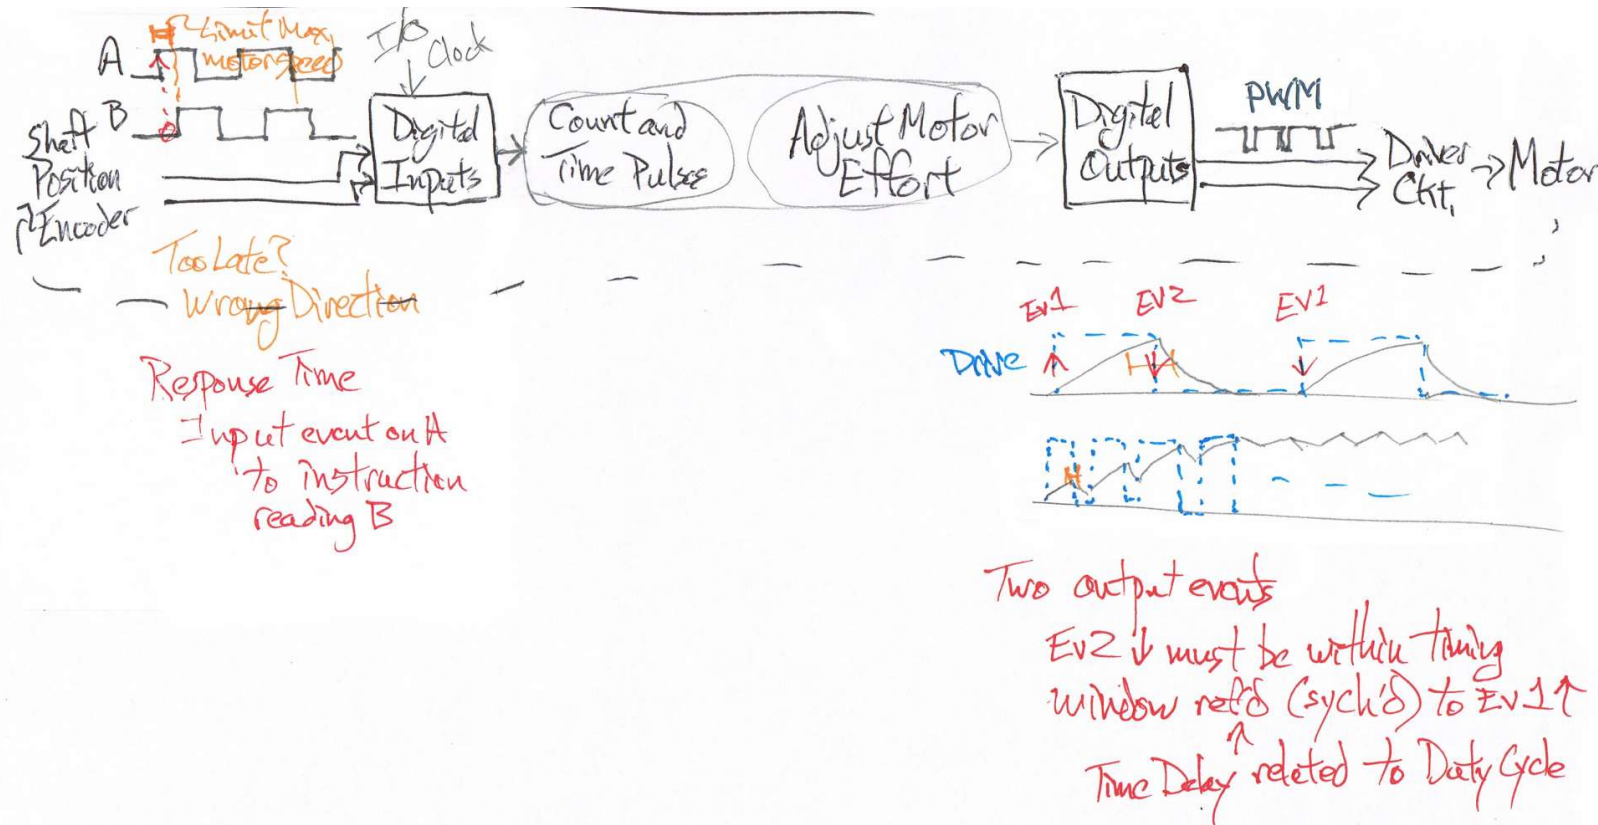 A
B
Shaft
Position
Encoder
Limit Max
motor speed
I/O
Clock
Digital
Inputs
Count and
Time Pulses
Adjust Motor
Effort
Digital
Outputs
PWM
Driver
Ckt.
Motor
Too Late?
Wrong Direction
Response Time
Input event on A
to instruction
reading B
Ev1
EV2
EV1
Drive
Two output events
Ev2 ↓ must be within timing
window ref'd (sych'd) to Ev1↑
↑
Time Delay related to Duty Cycle